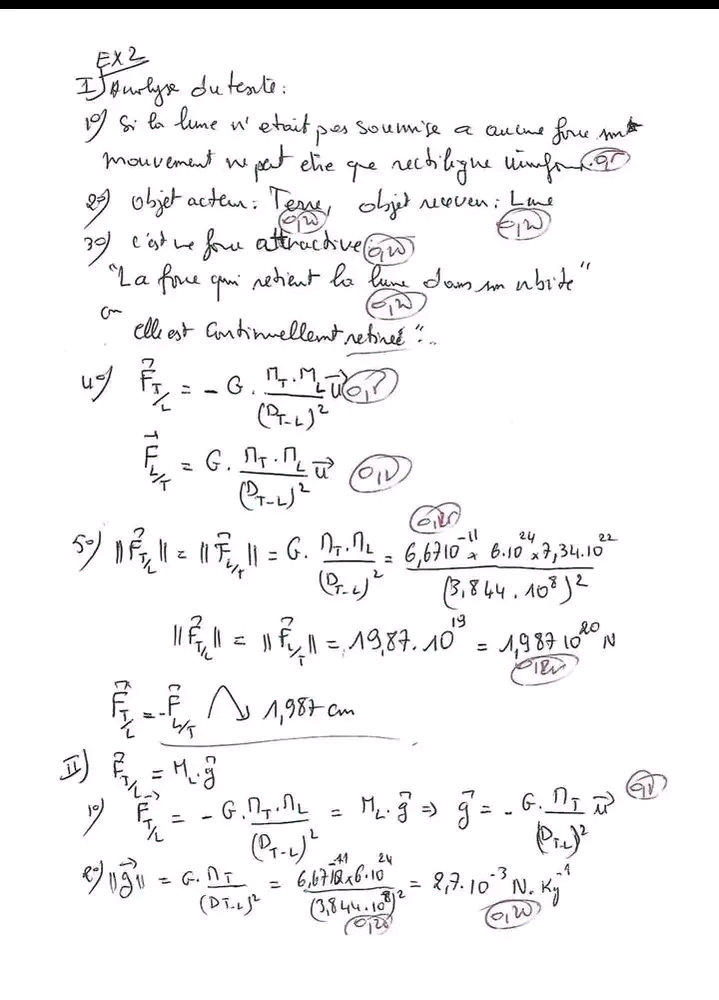 EX2
I) Analyse du texte :
1°) Si la lune n'etait pas soumise a aucune force son
mouvement ne peut etre que rectiligne uniforme. 0,25
2°) objet acteur : Terre, objet receveur : Lune
0,25 0,25
3°) c'est une force attractive : 0,25
"La force qui retient la lune dans son orbite"
0,25
ou
elle est continuellement retirée"..
4°) F⃗T/L = - G . MT.ML/(DT-L)² u⃗
F⃗L/T = G . MT.ML/(DT-L)² u⃗
5°) ||F⃗T/L|| = ||F⃗L/T|| = G . MT.ML/(DT-L)² = 6,67 10⁻¹¹ x 6.10²⁴ x 7,34.10²²/(3,844 . 10⁸)²
||F⃗T/L|| = ||F⃗L/T|| = 19,87.10¹⁹ = 1,987 10²⁰ N
F⃗T/L = -F⃗L/T 1,987 cm
II) F⃗T/L = ML.g⃗
1°) F⃗T/L = - G.MT.ML/(DT-L)² = ML.g⃗ ⇒ g⃗ = - G.MT/(DT-L)² u⃗
2°) ||g⃗|| = G.MT/(DT-L)² = 6,67 10⁻¹¹ x 6.10²⁴/(3,844.10⁸)² = 2,7.10⁻³ N.Kg⁻¹
0,25 0,25